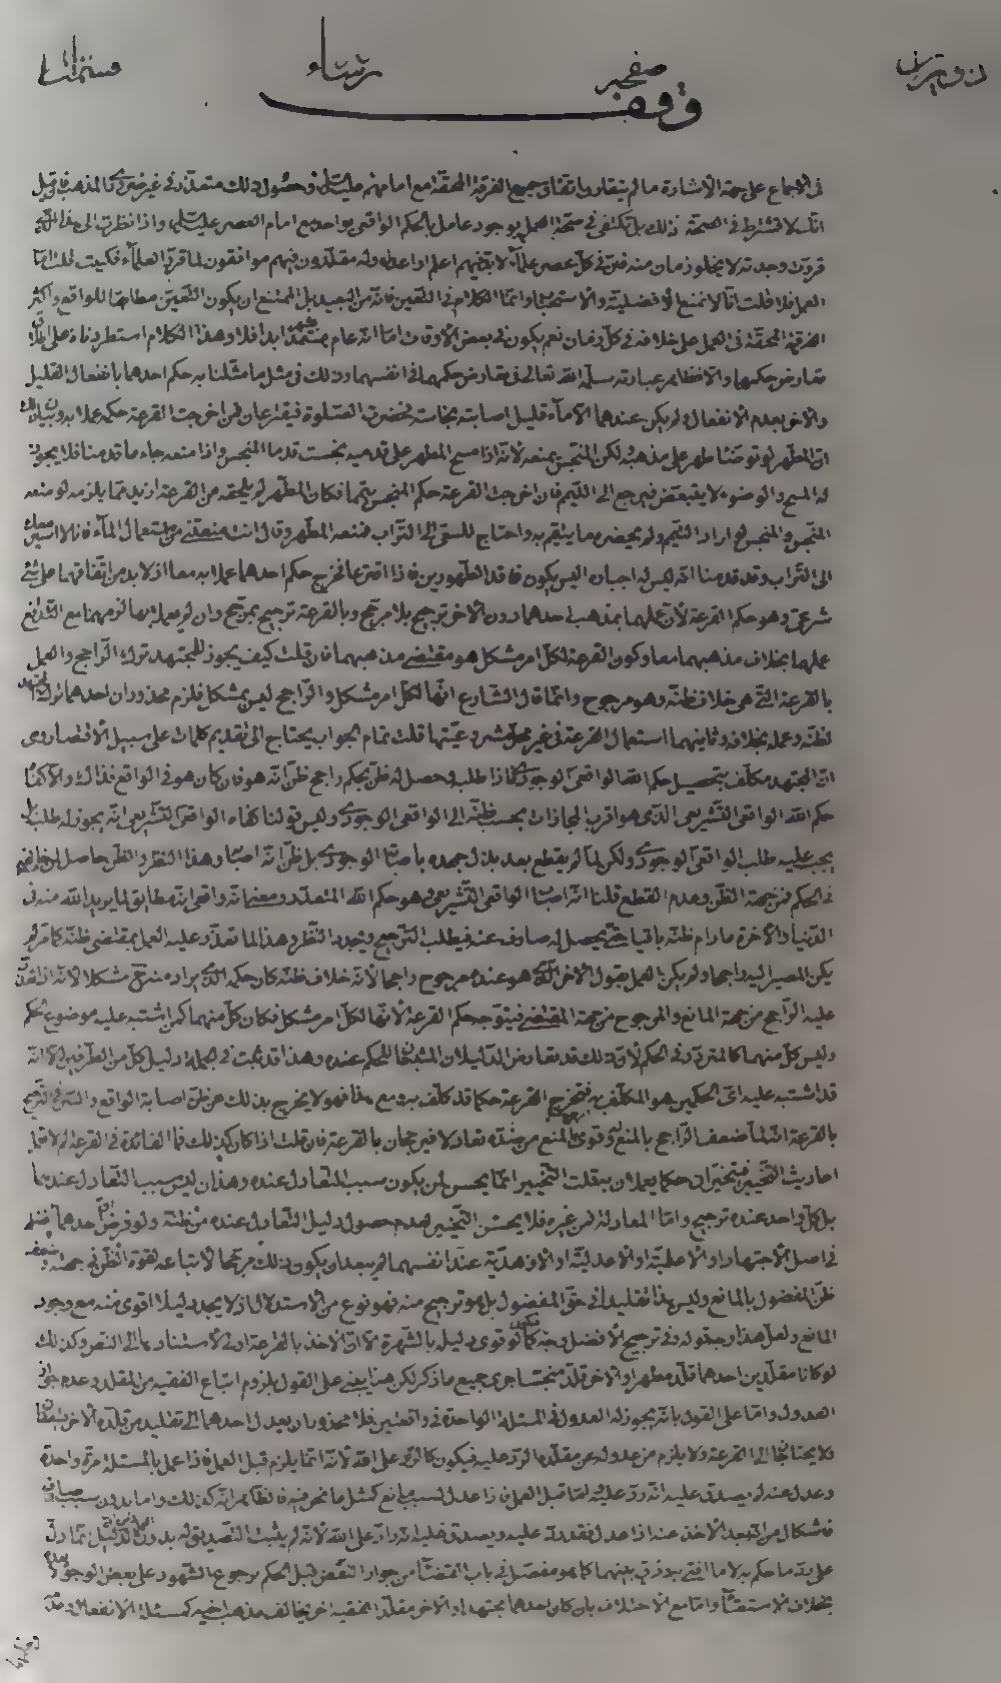 صفحه
وقف
في الاجماع على جهة الأشارة ما لم ينقل وباتفاق جميع الفرقة المحقة مع امامهم عليه السلام وحصول ذلك متعذر في غير ضروري المذهب فان قيل
انا لا نشترط في الصحة ذلك بل نكتفي في صحة العمل بوجود عامل بالحكم الواقعي يواحد مع امام العصر عليه السلام واذا نظرت الى
قررت وجدته لا يخلو زمان منه فان في كل عصر علماء لا بد فيهم اعلم او اعدل وله مقلدون فهم موافقون لما قرره العلماء فكيف
العمل فلا قلت انا لا نمنع الأفضلية والاستحباب وانما الكلام في التعيين فانه من البعيد بل الممتنع ان يكون التعيين مطابقا للواقع واكثر
الفرقة المحقة في العمل على خلافه في كل زمان نعم يكون في بعض الأوقات اما انه عام مستمر ابدا فلا وهذا الكلام استطردناه على
تعارض حكمهما والا فظاهر عبارته سلمه الله تعالى في تعارض حكمهما في انفسهما وذلك في مثل ما مثلنا به حكم احدهما بانفعال القليل
والآخر بعدم الانفعال ولم يكن عندهما الا ماء قليل اصابته نجاسة فحضرت الصلوة فيقترعان فمن اخرجت القرعة حكمه عملا به
ان المطهر لو توضأ طهر على مذهبه لكن المنجس يمنعه لأنه اذا مسح المطهر على قدميه نجست قدما المنجس واذا منعه جاء ما قدمنا فلا يجوز
له المسح والوضوء لا يتبعض فيرجع الى التيمم فان اخرجت القرعة حكم المنجس تيمما فكان المطهر لم يلحقه من القرعة ازيد مما يلزمه لو منعه
المنجس والمنجس لو اراد التيمم ولم يحضره ما يتيمم به واحتاج للسعي الى التراب فمنعه المطهر وقال انت منعتني من استعمال الماء فانا لا اسير
الى التراب وقد قدمنا انه ليس له اجباره اليس يكون فاقد الطهورين فاذا اقترعا فخرج حكم احدهما عملا به معا اذ لا بد من اتفاقهما على شيء
شرعي وهو حكم القرعة لأن عملهما بمذهب احدهما دون الآخر ترجيح بلا مرجح وبالقرعة ترجيح بمرجح وان لم يعملا بها لزمهما مع التدافع
عملهما بخلاف مذهبهما معا وكون القرعة لكل امر مشكل هو مقتضى مذهبهما فان قلت كيف يجوز للمجتهد ترك الراجح والعمل
بالقرعة التي هي خلاف ظنه وهو مرجوح وانما قال الشارع انها لكل امر مشكل والراجح ليس بمشكل فلزم محذوران احدهما ترك المجتهد
لظنه وعمله بخلافه وثانيهما استعمال القرعة في غير محل مشروعيتها قلت تمام الجواب يحتاج الى تقديم كلمات على سبيل الاقتصار وهي
ان المجتهد مكلف بتحصيل حكم الله الواقعي الوجودي فاذا طلبه وحصل له ظن بحكم راجح ظن انه هو فان كان هو في الواقع فذاك والا كان
حكم الله الواقعي التشريعي الذي هو اقرب المجازات بحسب ظنه الى الواقعي الوجودي وليس قولنا كفاه الواقعي التشريعي انه يجوز له طلبه بل
يجب عليه طلب الواقعي الوجودي ولكن لما لم يقطع بعد بذل جهده باصابة الوجودي بل ظن انه اصابه وهذا النظر والظن حاصل لمن خالفه
في الحكم فمن جهة الظن وعدم القطع قلنا انه اصاب الواقعي التشريعي وهو حكم الله المتعدد ومعنى انه واقعي انه مطابق لما يريد الله منه في
الدنيا والآخرة ما دام ظنه باقيا حتى يحصل له صارف عنه فيطلب الترجيح ويجدد النظر وهذا لما تعذر عليه العمل بمقتضى ظنه كما مر لم
يكن المصير اليه واجبا ولم يكن العمل بقول الآخر الذي هو عنده مرجوح واجبا لأنه خلاف ظنه كان حكمه الذي يراد منه مشكلا لأنه اذا تعذر
عليه الراجح من جهة المانع والمرجوح من جهة المقتضي فيتوجه حكم القرعة لأنها لكل امر مشكل فكان كل منهما كمن اشتبه عليه موضوع الحكم
وليس كل منهما كالمتردد في الحكم لأن ذلك قد تعارض الدليلان المثبتان للحكم عنده وهذا قد ثبت في الجملة دليل كل من الطرفين الا انه
قد اشتبه عليه اي الحكمين هو المكلف به فتخرج القرعة حكما قد كلف به فهو لا يخرج بذلك عن ظن اصابة الواقع والسر في الترجيح
بالقرعة انه لما ضعف الراجح بالمنع وقوي المنع من ضده تعادلا فيرجحان بالقرعة فان قلت اذا كان كذلك فما الفائدة في القرعة
احاديث التخيير فيتخير اي حكما يعملان به قلت التخيير انما يحسن لمن يكون سبب التعادل عنده وهذان ليس سبب التعادل عندهما
بل كل واحد عنده ترجيح واما المعادلة فمن غيره فلا يحسن التخيير لعدم حصول دليل التعادل عنده من ظنه ولو فرض احدهما افضل
في اصل الأجتهاد او الأعلمية او الأعدلية او الأزهدية عند انفسهما لم يبعد ان يكون ذلك مرجحا لاتباعه لقوة الظن في جهته وضعف
ظن المفضول بالمانع وليس هذا تقليدا في حق المفضول بل هو ترجيح منه فهو نوع من الاستدلال اذ لا يجد دليلا اقوى منه مع وجود
المانع ولعل هذا وجه قوله وفي ترجيح الأفضل وجه كما لو قوي دليله بالشهرة الا ان الأخذ بالقرعة اولى لاستناده الى النص وكذلك
لو كانا مقلدين احدهما قلد مطهرا والآخر قلد منجسا جرى جميع ما ذكر لكن هذا يبتنى على القول بلزوم اتباع الفقيه من المقلد وعدم جواز
العدول واما على القول بانه يجوز له العدول في المسئلة الواحدة في واقعتين فلا محذور ان يعدل احدهما الى تقليد من قلده الآخر
ولا يحتاجا الى القرعة ولا يلزم من عدوله عن مقلده الرد عليه فيكون كالراد على الله لأنه انما يلزم قبل العمل فاذا عمل بالمسئلة مرة واحدة
وعدل عنه لم يصدق عليه انه رد عليه اما قبل العمل فاذا عدل لسبب مانع كمثل ما نحن فيه فالظاهر انه كذلك واما بدون سبب صارف
فاشكال من انه بعد الأخذ عنه اذا عدل فقد رد عليه ويصدق عليه انه راد على الله لأنه لم يثبت التصديق له بدون
على رد ما حكم به لا ما افتى به وفرق بينهما كما هو مفصل في باب القضاء من جواز النقض قبل الحكم برجوع الشهود على بعض الوجوه
بخلاف الاستفتاء واما مع الاختلاف بان كان احدهما مجتهدا والآخر مقلدا لفقيه آخر يخالف مذهب اخيه كمسئلة الانفعال وعدمه